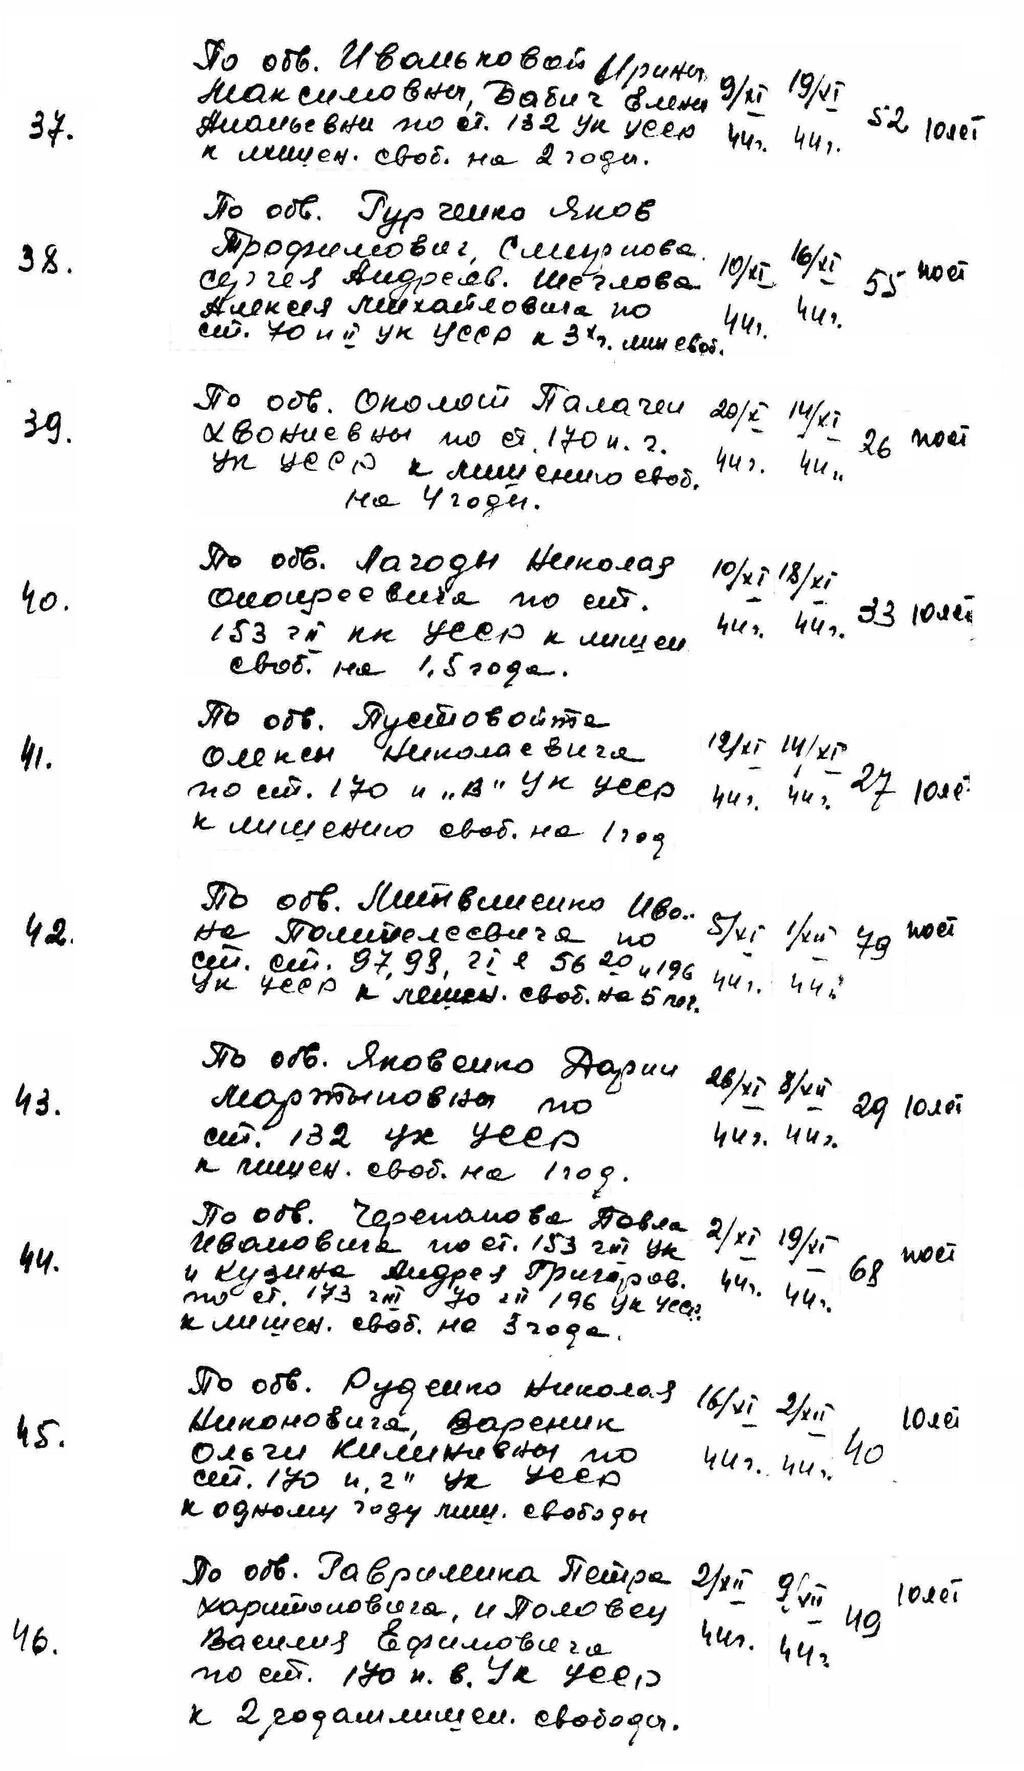 37.
По обв. Ивальковой Ирины
Максимовны, Бабич Елены
Ананьевны по ст. 132 УК УССР
к лишен. своб. на 2 годы.
9/XI 44г. 19/XI 44г. 52 10лет
38.
По обв. Гурченко Яков
Трофимович, Смирнова
Сергея Андреев. Щеглова
Алексея Михайловича по
ст. 70 ч II УК УССР к 3х г. лиш своб.
10/XI 44г. 16/XI 44г. 55 пост
39.
По обв. Околот Палачеи
по ст. 170 п. г.
УК УССР к лишению своб.
на 4 годы.
20/X 44г. 14/XI 44" 26 пост
40.
По обв. Лагоды Николая
Оноприевича по ст.
153 ч II УССР к лишен
своб. на 1,5 года.
10/XI 44г. 18/XI 44г. 33 10лет
41.
По обв. Пустовойта
Олексы Николаевича
по ст. 170 п „В" УК УССР
к лишению своб. на 1 год
12/XI 44г. 14/XI 44г. 27 10ле
42.
По обв. Ива-
на по
ст. ст. 97, 98, ч I 56 20 и 196
УК УССР к лишен. своб. на 5 лет.
5/XI 44г. 1/XII 44г 79 пост
43.
По обв. Яковенко Дарии
Мартыновны по
ст. 132 УК УССР
к лишен. своб. на 1 год.
26/XI 44г. 8/XII 44г. 29 10лет
44.
По обв. Черепанова Павла
Ивановича по ст. 153 ч III УК
и Кузина Андрея Григоров.
по ст. 173 ч III 70 ч II 196 УК УССР
к лишен. своб. на 3 года.
2/XI 44г. 19/XI 44г. 68 пост
45.
По обв. Руденко Николая
Никоновича, Вареник
Ольги Килинивны по
ст. 170 п „г" УК УССР
к одному году лиш. свободы
16/XI 44г. 2/XII 44г. 40 10лет
46.
По обв. Гавриленка Петра
Харитоновича, и Половец
Василия Ефимовича
по ст. 170 п. в. УК УССР
к 2 годам лишен. свободы.
2/XII 44г. 9/XII 44г 49 10лет